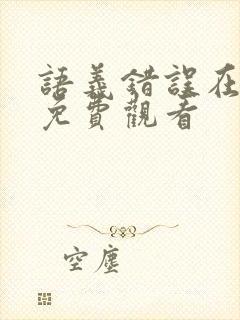 語義錯誤在
免費觀看
空塵